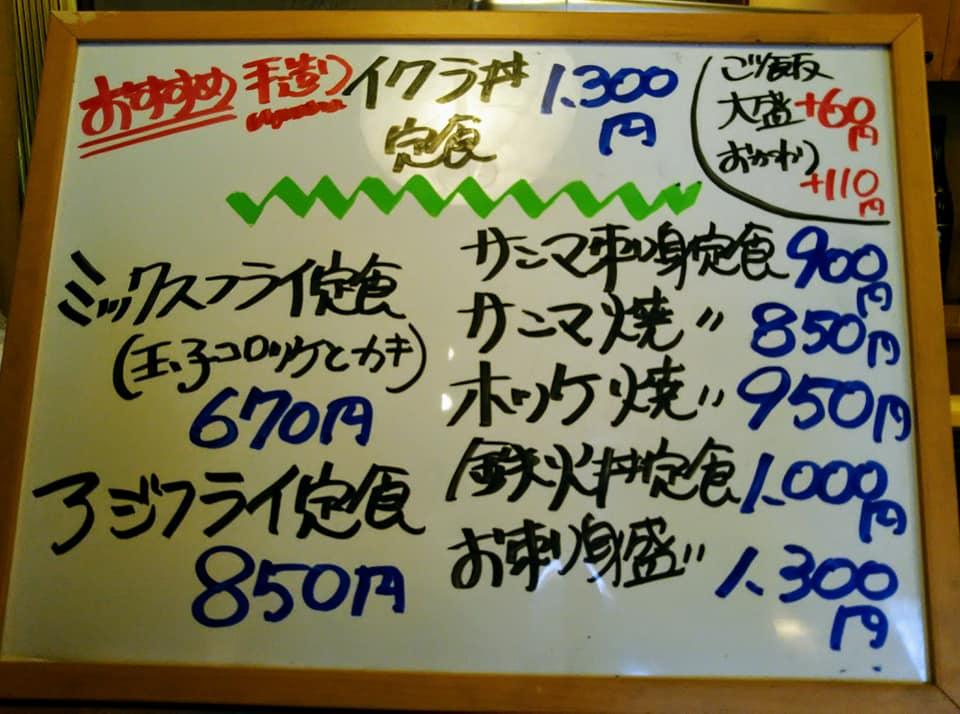 おすすめ 手造り イクラ丼 1,300
定食 円
ご飯
大盛 +60円
おかわり
+110円
ミックスフライ定食
(玉子コロッケとカキ)
670円
アジフライ定食
850円
サンマ刺り身定食 900円
サンマ焼〃 850円
ホッケ焼〃 950円
鉄火丼定食 1,000円
お刺り身盛〃 1,300
円